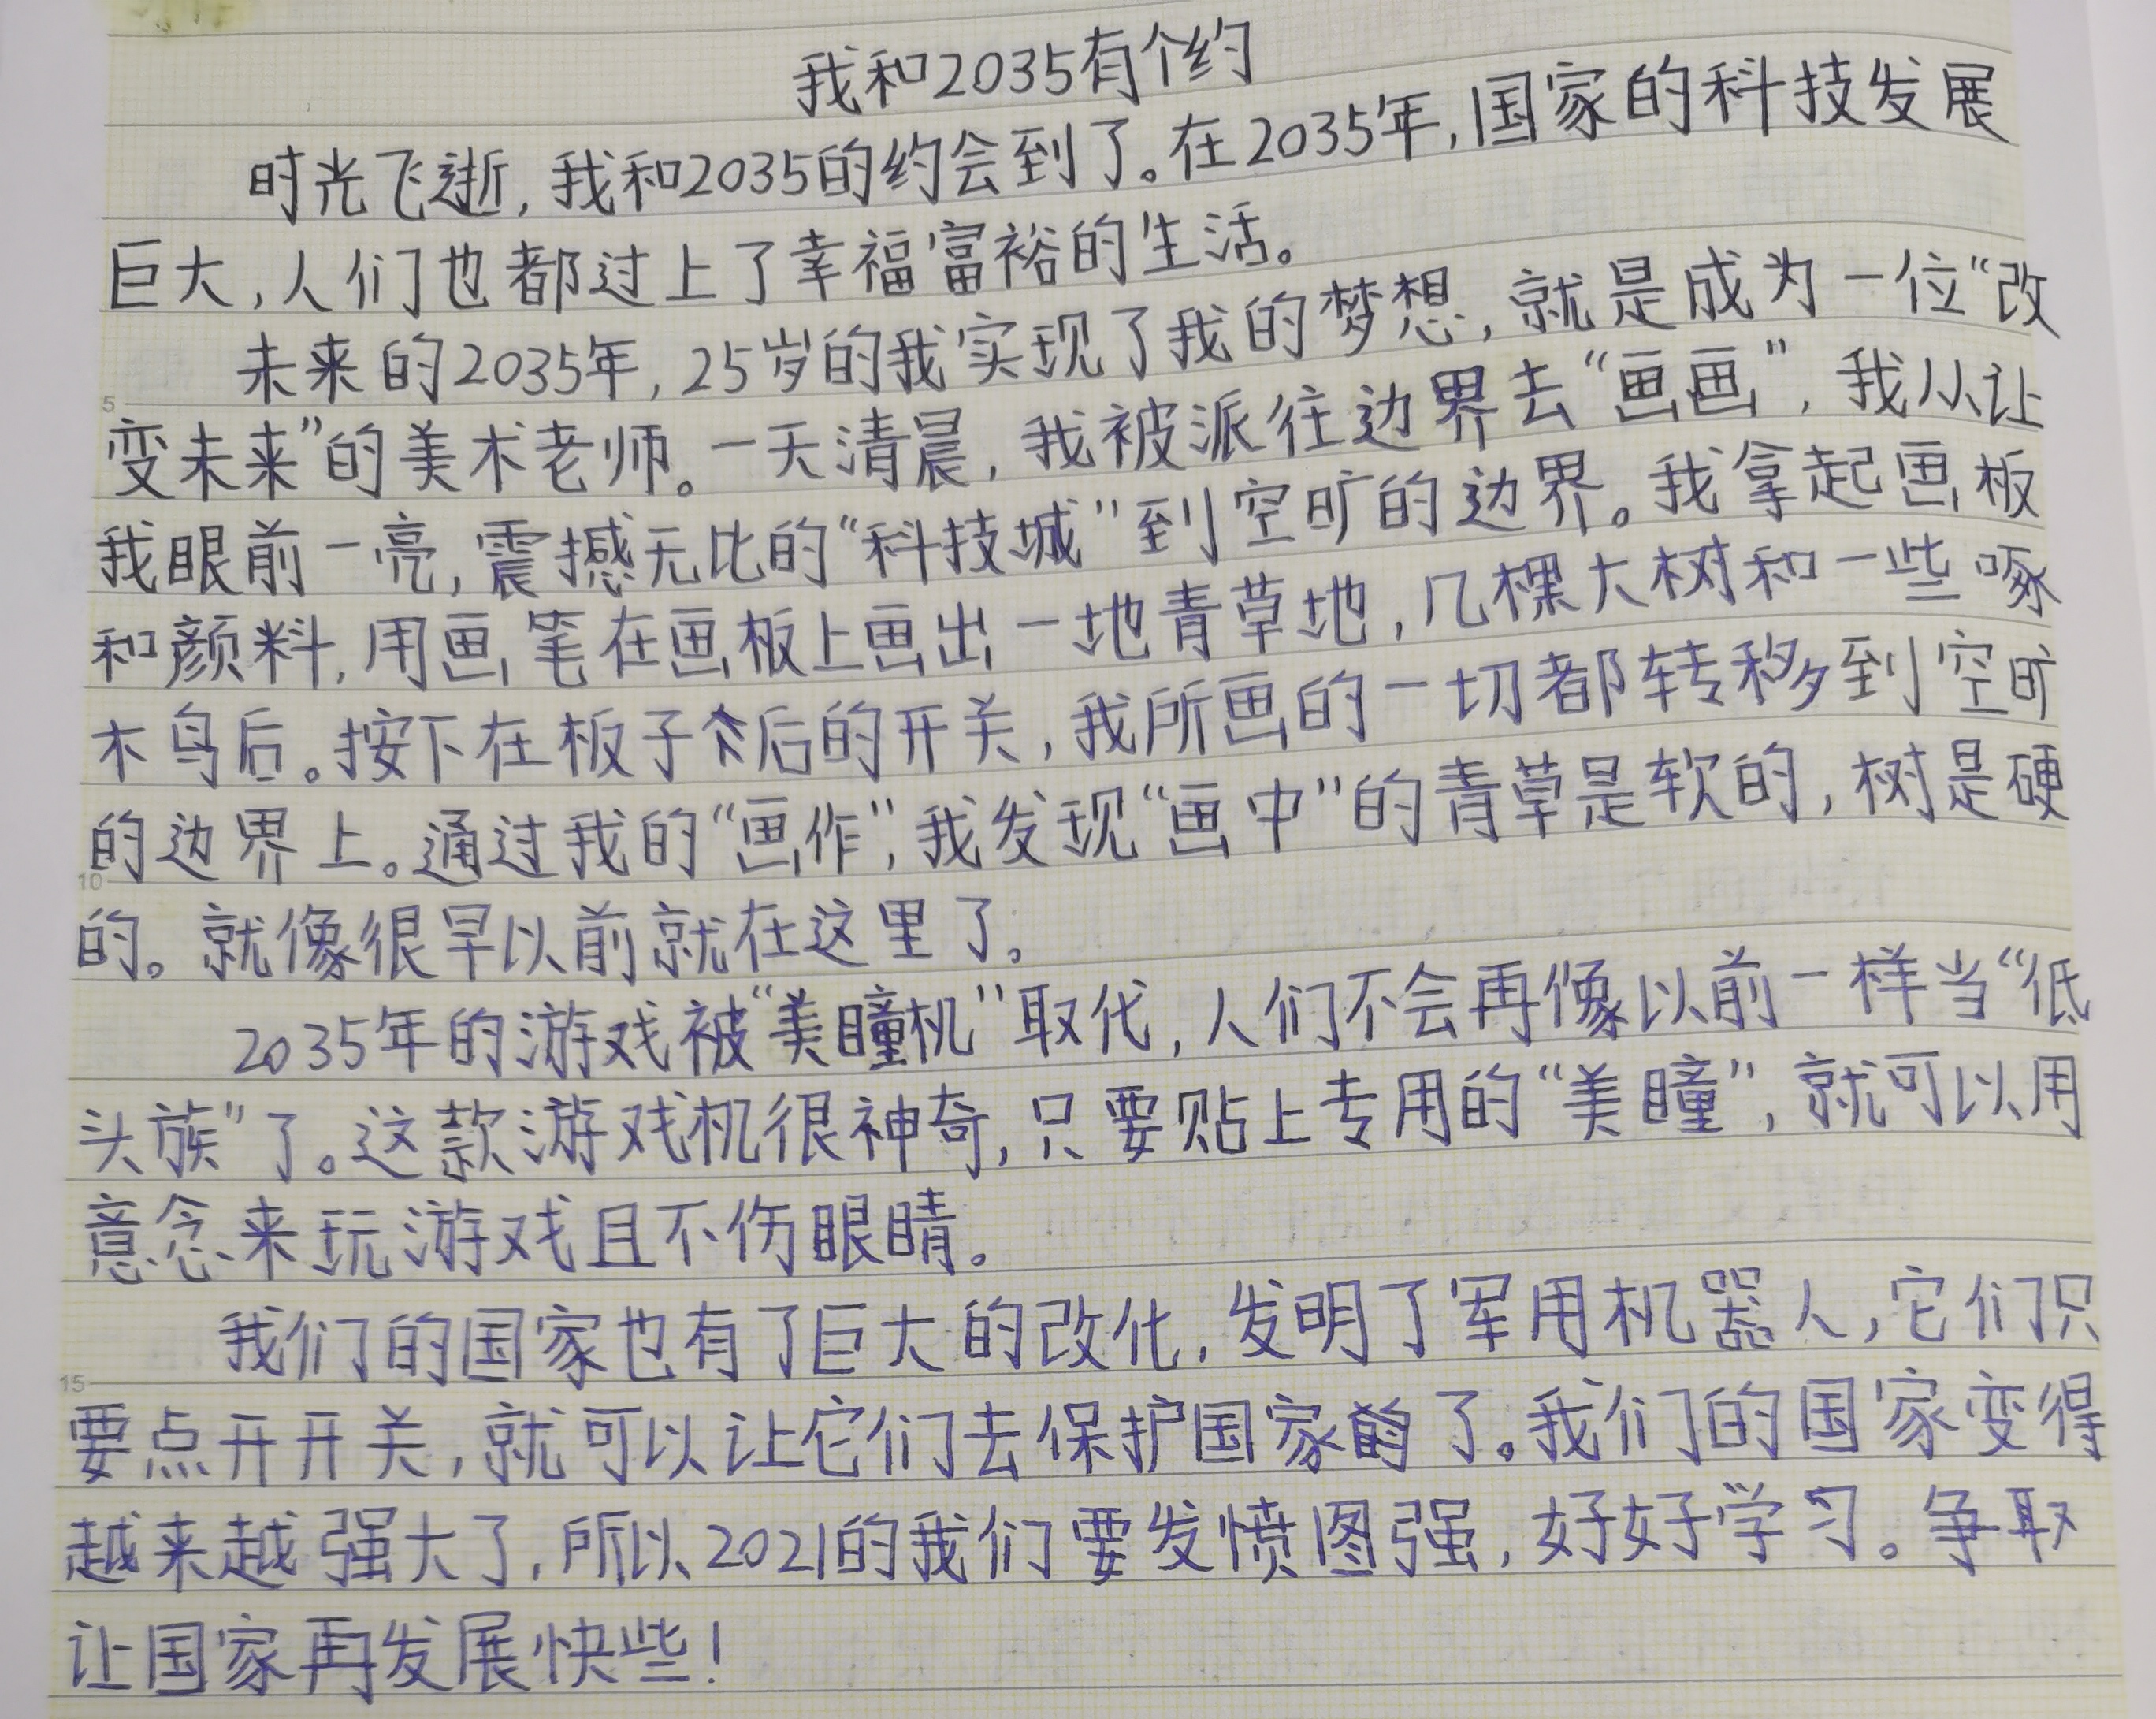 我和2035有个约
时光飞逝,我和2035的约会到了。在2035年,国家的科技发展
巨大,人们也都过上了幸福富裕的生活。
未来的2035年,25岁的我实现了我的梦想,就是成为一位“改
5
变未来”的美术老师。一天清晨,我被派往边界去“画画”,我从让
我眼前一亮,震撼无比的“科技城”到空旷的边界。我拿起画板
和颜料,用画笔在画板上画出一地青草地,几棵大树和一些啄
木鸟后。按下在板子后的开关,我所画的一切都转移到空旷
的边界上。通过我的“画作”,我发现“画中”的青草是软的,树是硬
10
的。就像很早以前就在这里了。
2035年的游戏被“美瞳机”取代,人们不会再像以前一样当“低
头族”了。这款游戏机很神奇,只要贴上专用的“美瞳”,就可以用
意念来玩游戏且不伤眼睛。
我们的国家也有了巨大的改化,发明了军用机器人,它们只
15
要点开开关,就可以让它们去保护国家了。我们的国家变得
越来越强大了,所以2021的我们要发愤图强,好好学习。争取
让国家再发展快些!